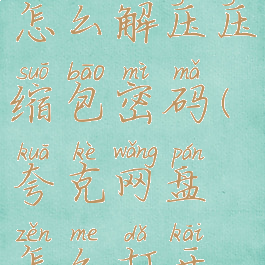 怎么解压压
suō bāo mì mǎ
缩包密码(
kuā kè wǎng pán
夸克网盘
zěn me dǎ kāi
怎么打开